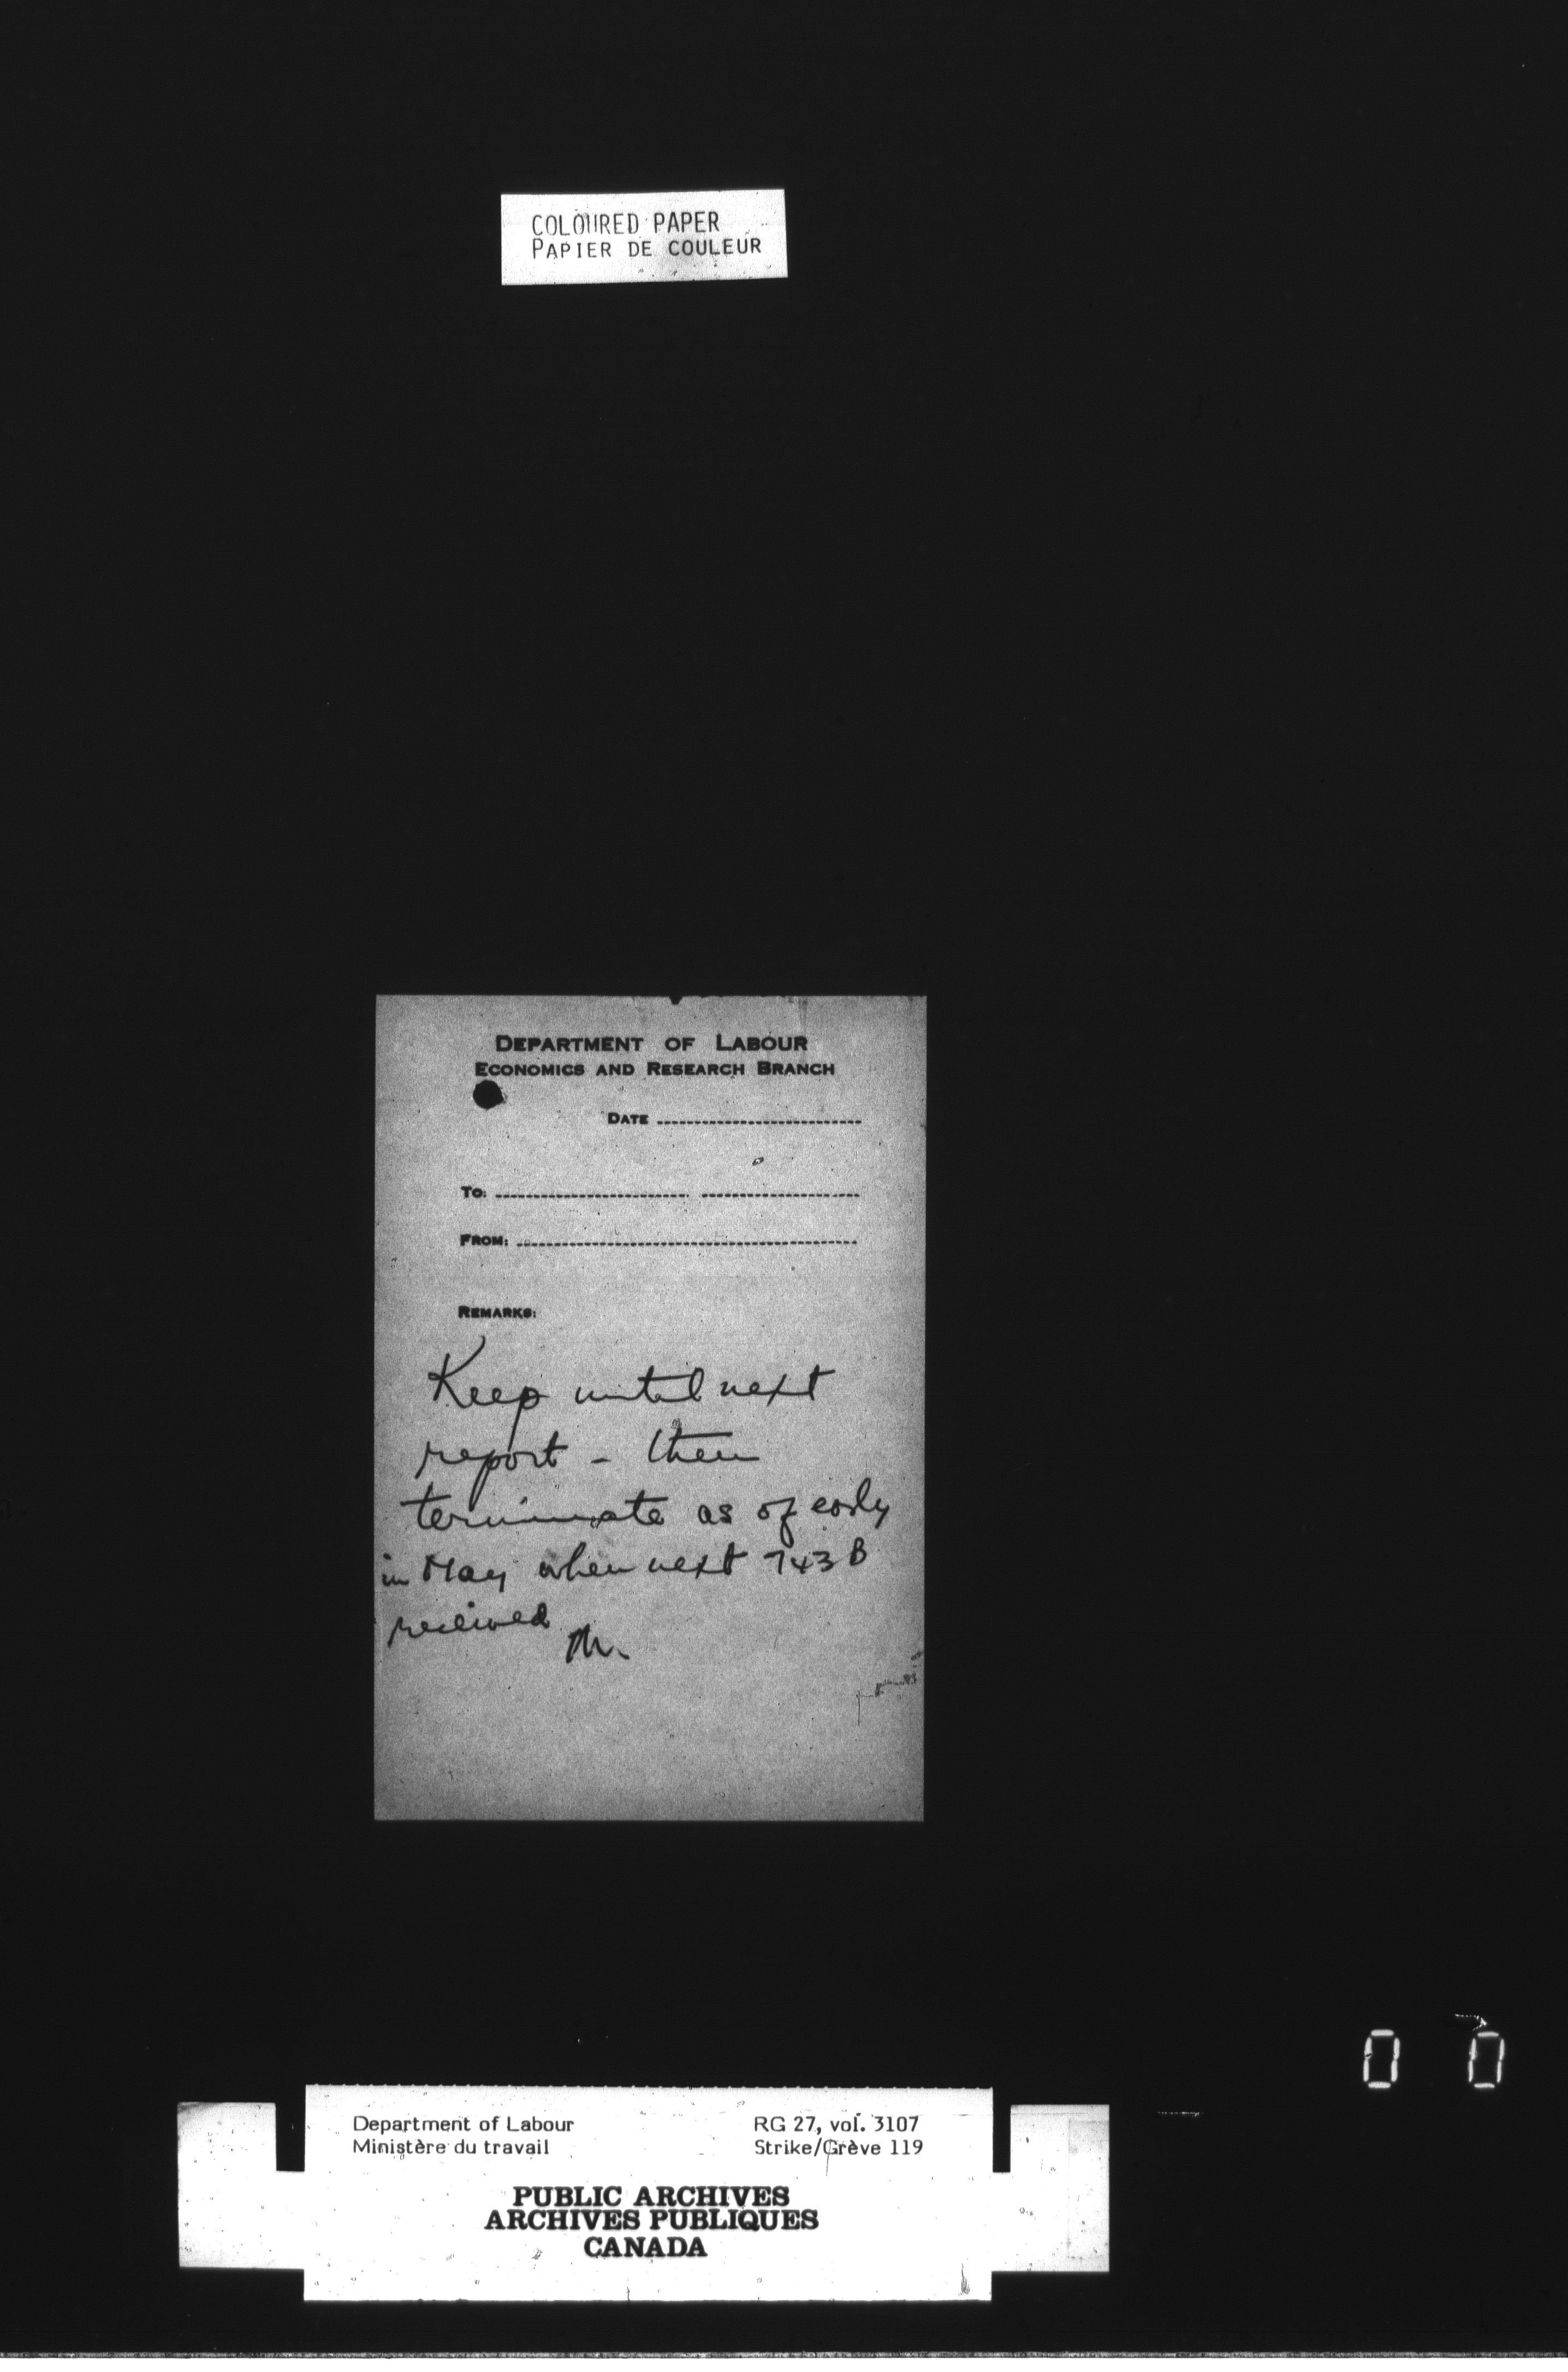 COLOURED PAPER
PAPIER DE COULEUR
DEPARTMENT OF LABOUR
ECONOMICS AND RESEARCH BRANCH
DATE
TO:
FROM:
REMARKS:
Keep until next
report - then
terminate as of early
in May when next 743 B
received
M.
0 0
Department of Labour RG 27, vol. 3107
Ministère du travail Strike/Grève 119
PUBLIC ARCHIVES
ARCHIVES PUBLIQUES
CANADA